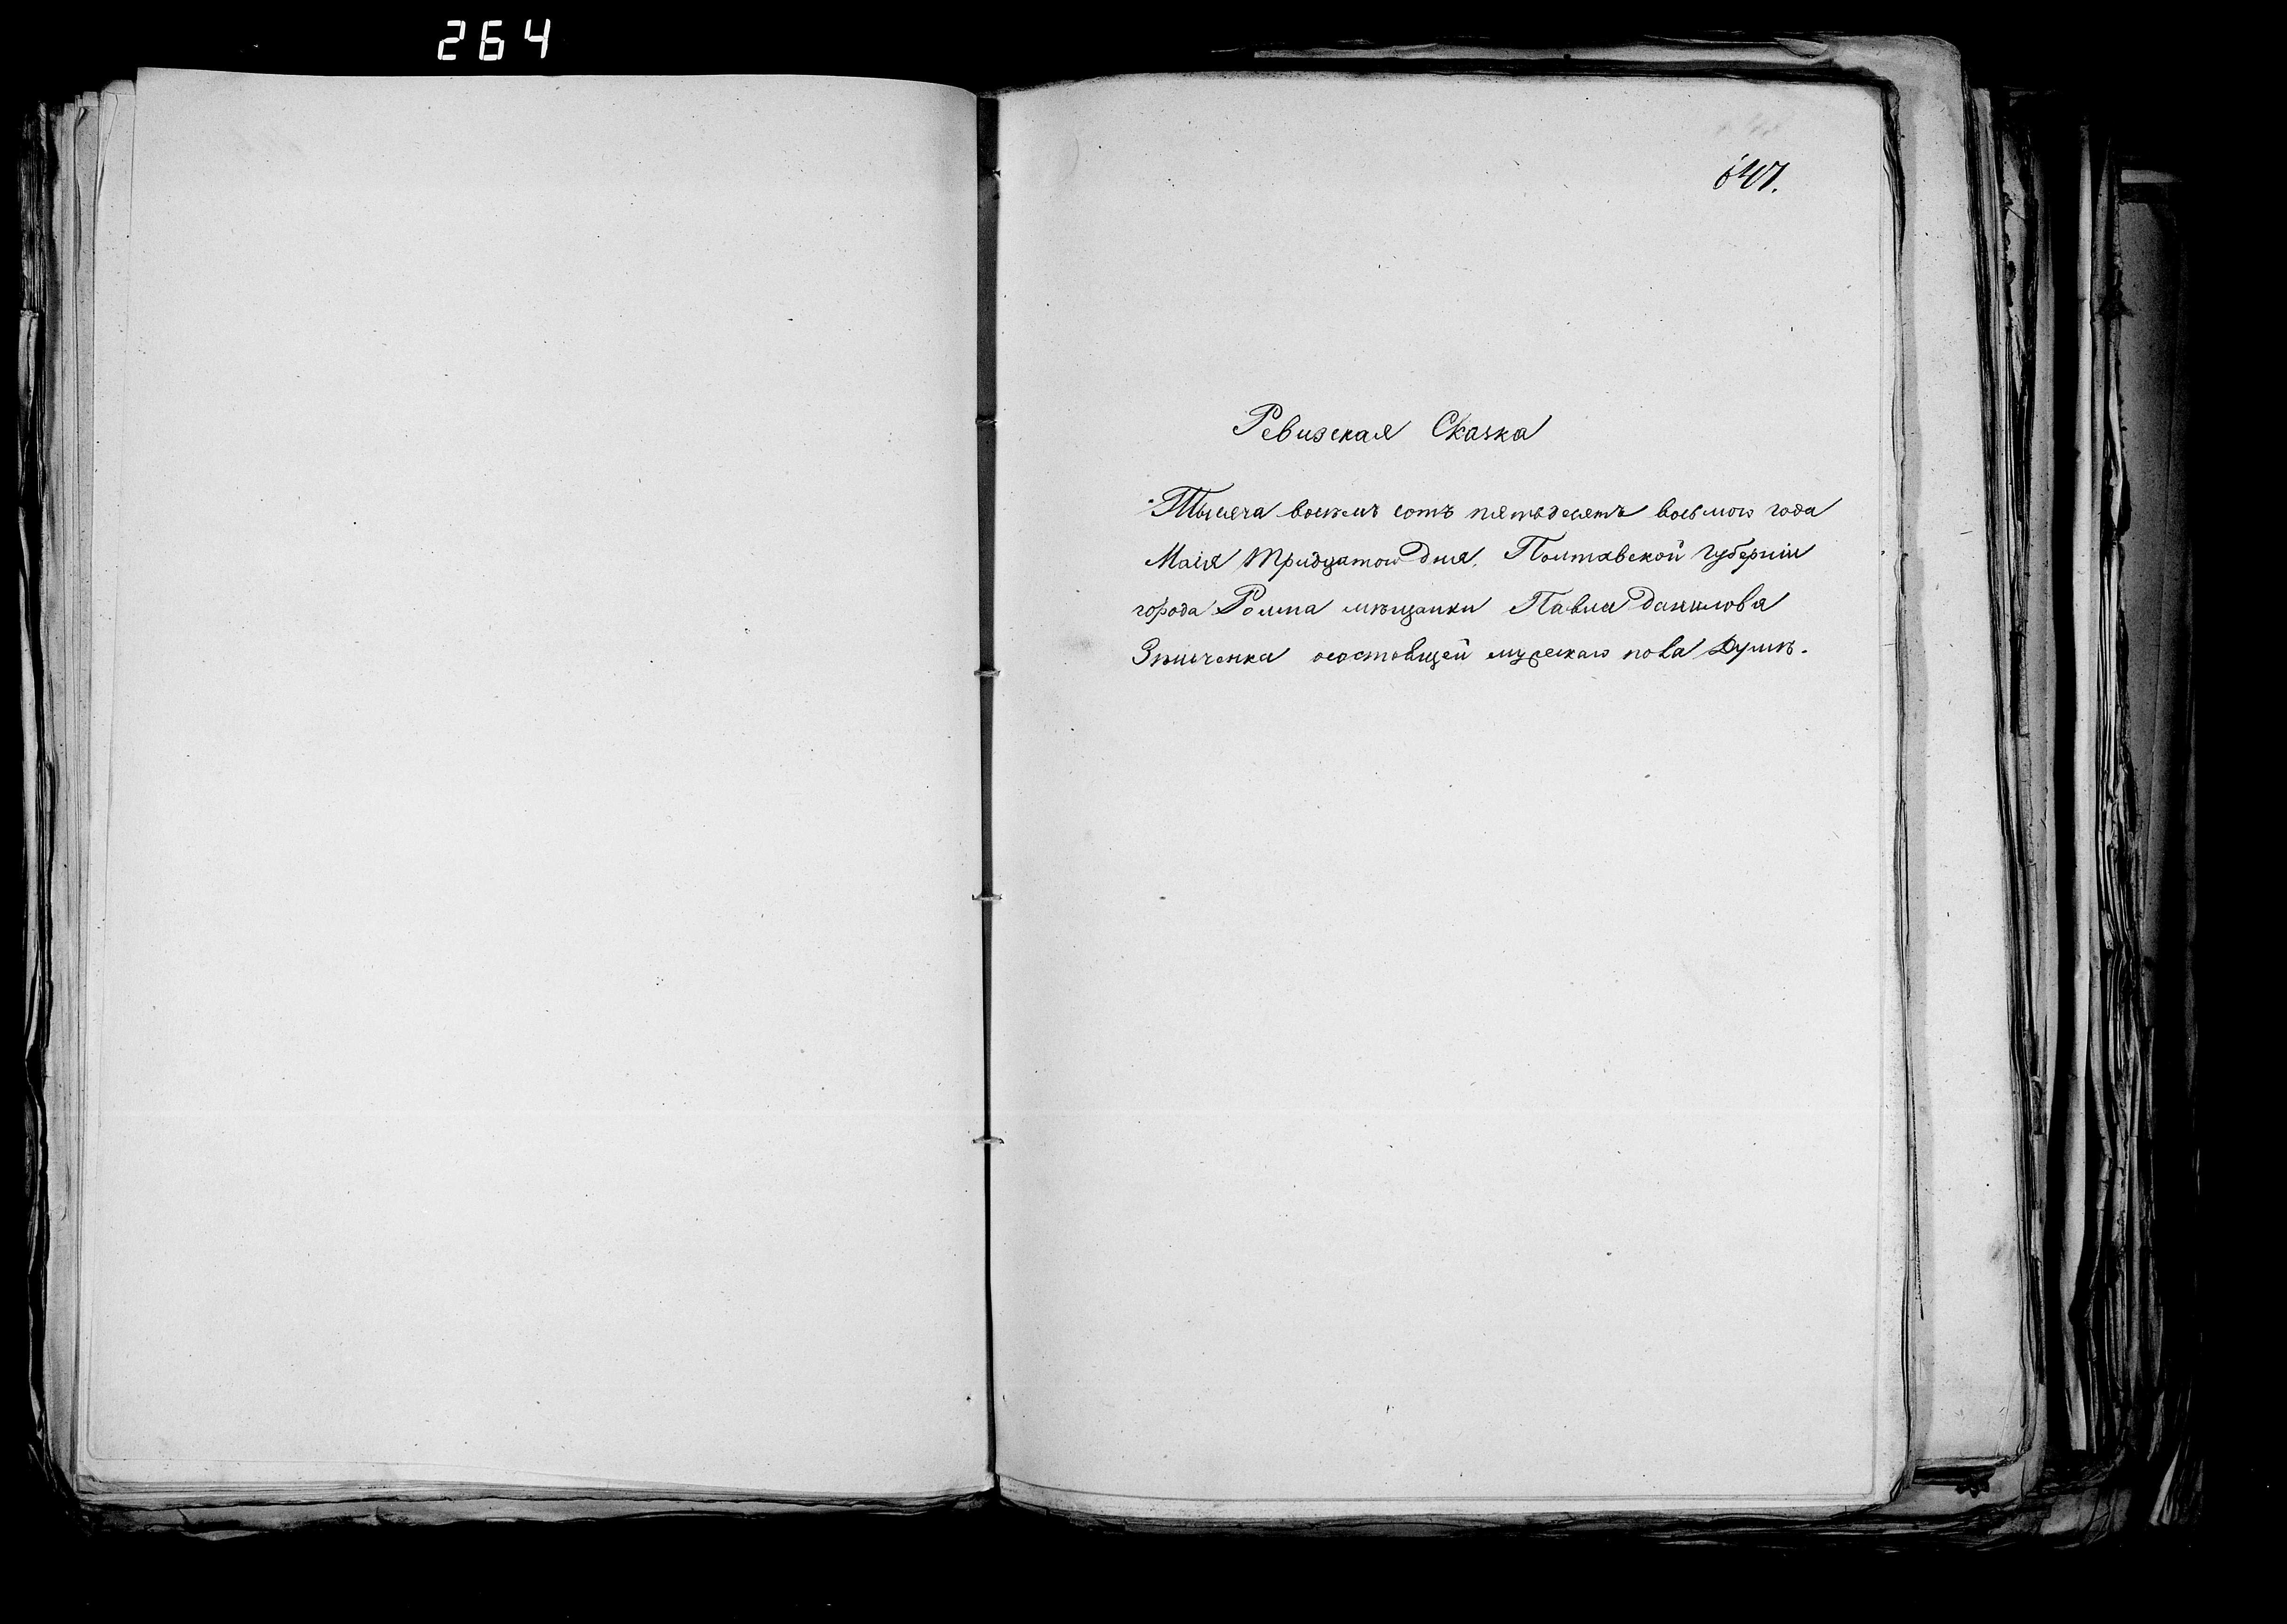 264
647.
Ревизская Сказка
Тысяча восемъ сотъ пятьдесятъ восьмого года
Маія тридцатого дня, Полтавской губерніи
города Ромна мѣщанки Павла Данилова
состоящей мужскаго пола душѣ.